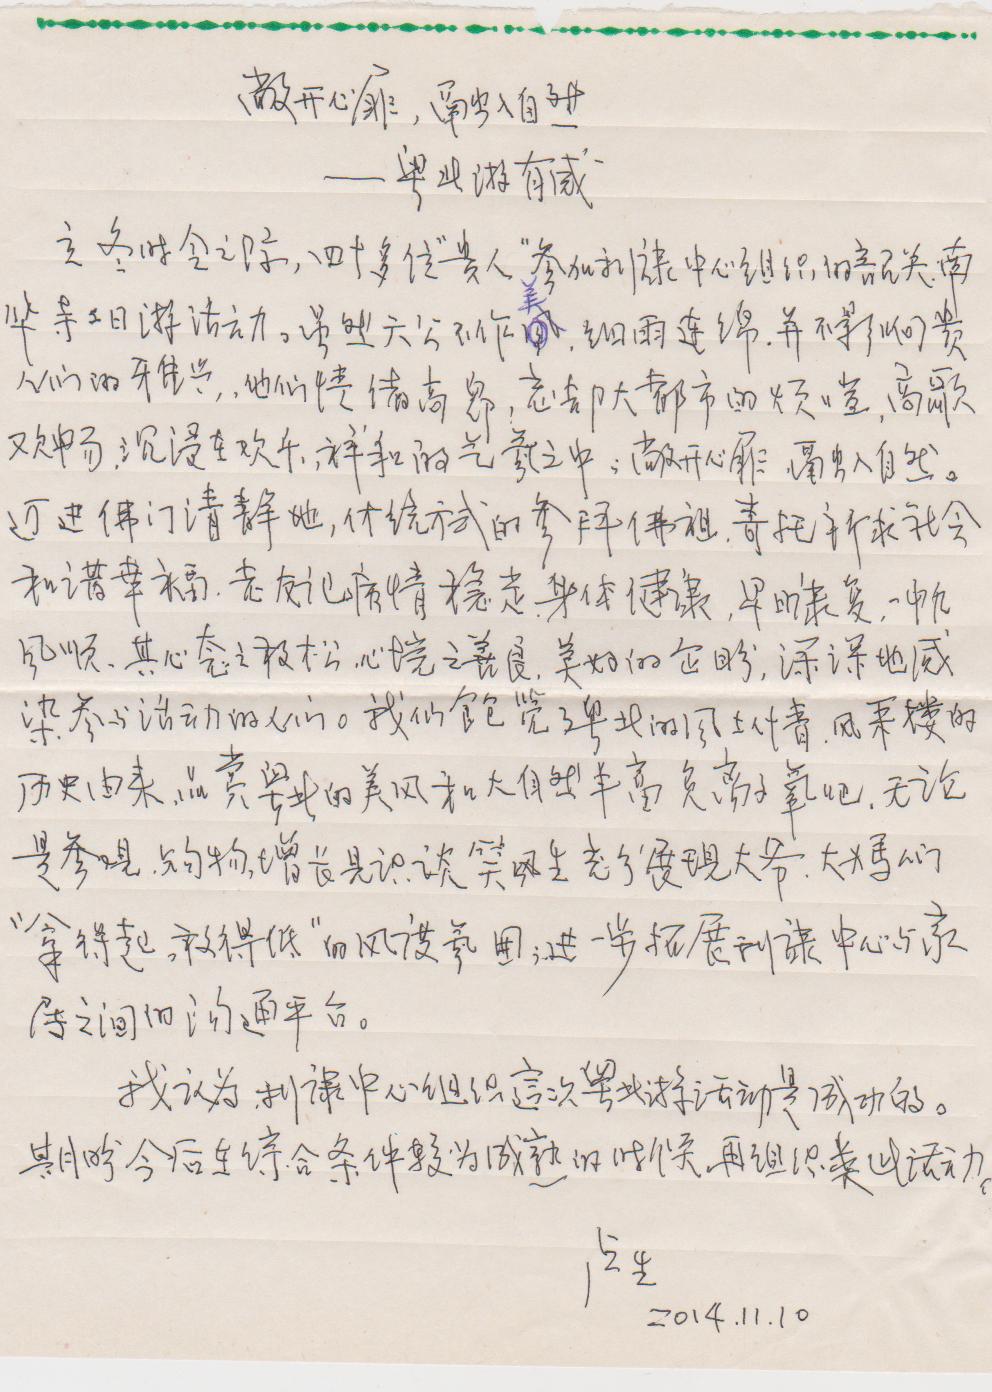 敞开心扉，融入自然
——粤北游有感
立冬时令之际，四十多位"贵人"参加利康中心组织的韶关南
华寺二日游活动。虽然天公不作美，细雨连绵，并不影响贵
人们的雅兴，他们情绪高昂，忘却大都市的烦喧，高歌
欢畅，沉浸在欢乐，祥和的气氛之中，敞开心扉，融入自然。
迈进佛门清静地，传统方式的参拜佛祖，寄托祈求社会
和谐幸福，老友记病情稳定，身体健康，早日康复，一帆
风顺。其心态之放松，心境之善良，美好的企盼，深深地感
染参与活动的人们。我们饱览了粤北的风土人情，风采楼的
历史由来，品赏粤北的美风和大自然丰富负离子氧吧，无论
是参观，购物，增长见识，谈笑风生，充分展现大爷、大妈们
"拿得起，放得低"的风度氛围，进一步拓展利康中心与家
属之间的沟通平台。
我认为，利康中心组织这次粤北游活动是成功的。
期盼今后在综合条件较为成熟的时候，再组织类此活动。
卢生
2014.11.10